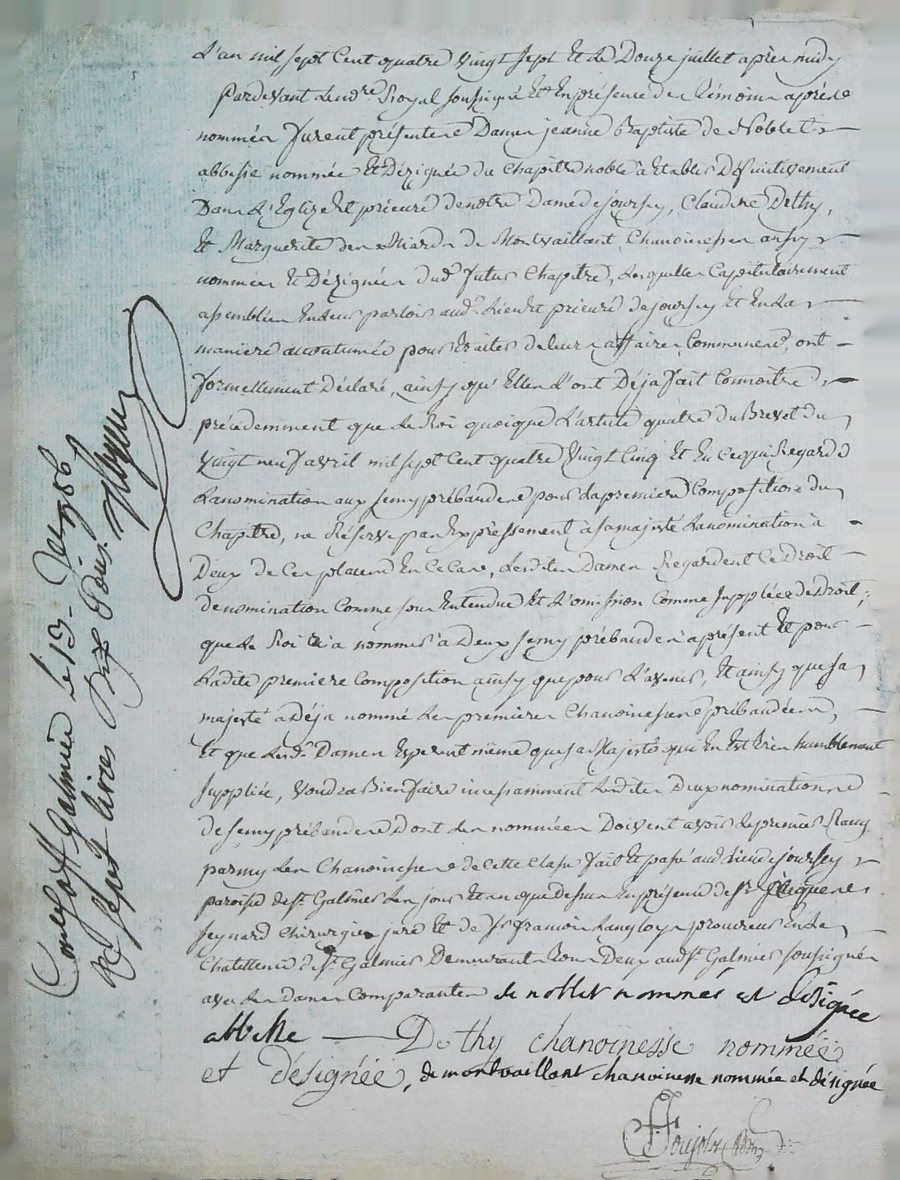 L'an mil sept Cent quatre vingt sept Et Le Douze juillet après midy
Pardevant Le no.re Royal soussigné Et En présence des témoins après
nommés furent présentes Dames jeanne Baptiste de Noblet
abbesse nommée Et Dézignée du Chapitre noble à Etablir Définitivement
Dans L'Eglize Et prieuré de notre Dame de joursey, Claudine Dethy,
Et Marguerite des de Montvaillant Chanoinesses aussy
nommées Et Dézignées dud. futur Chapitre, Lesquelles Capitulairement
assemblées En Leur parloir aud. Lieu Et prieuré de joursey Et En La
maniere accoutumée pour traiter de leurs affaires Communes, ont
formellement Déclaré, ainsy qu'Elles L'ont Déja fait Connoitre
précédemment que Le Roi quoique L'article quatre du Brevet du
Vingt neuf avril mil sept Cent quatre Vingt Cinq Et En Ce qui Regarde
La nomination aux semy prébendes pour La premiere Composition du
Chapitre, ne Réserve pas Expressement à sa majesté La nomination à
Deux de Ces places En Ce Cas, Lesdites Dames Regardent Ce Droit
de nomination Comme sous Entendue Et L'omission Comme suppléée de Droit;
que Le Roi a nommer à Deux semy prébendes à présent Et pour
Ladite premiere Composition ainsy que pour L'avenir, Et ainsy que sa
majesté a Déja nommé Les premieres Chanoinesses prébandées,
Et que Lesd. Dames Esperent même que sa Majesté qui En Est Bien humblement
suppliée, Voudra Bien faire incessamment Lesdites Deux nominations
de semy prébendes Dont Les nommées Doivent avoir Le premier Rang
parmy Les Chanoinesses de Cette Classe fait Et passé aud. Lieu de joursey
paroisse de St. Galmier Les jour Et an que dessus En présence de Sr.
seynard Chirurgien juré Et de Sr. françois Langloys procureur En La
Chatellenie de St. Galmier Demeurant tous Deux aud. St. Galmier soussignés
avec Les Dames Comparantes de noblet nommée et désignée
abbesse — De thy chanoinesse nommée
et désignée, de montvaillant chanoinesse nommée et désignée
Con.lé à St Galmier le 13
Sept livres Dix sous